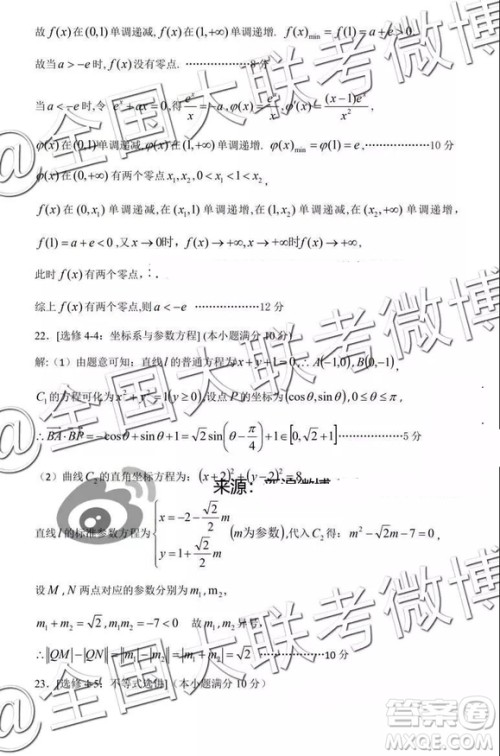 故 f(x) 在 (0,1) 单调递减, f(x) 在 (1,+∞) 单调递增. f(x)min = f(1) = a+e > 0,
故当 a > -e 时, f(x) 没有零点. ………………8 分
当 a < -e 时, 令 e^x + ax = 0, 得 e^x/x = -a, φ(x) = e^x/x, φ'(x) = (x-1)e^x/x²,
φ(x) 在 (0,1) 单调递减, φ(x) 在 (1,+∞) 单调递增. φ(x)min = φ(1) = e, ………………10 分
φ(x) 在 (0,+∞) 有两个零点 x₁, x₂, 0 < x₁ < 1 < x₂,
f(x) 在 (0, x₁) 单调递减, 在 (x₁,1) 单调递增, 在
f(1) = a+e < 0, 又 x → 0 时, f(x) → +∞, x → +∞ 时 f(x) → +∞,
此时 f(x) 有两个零点,
综上 f(x) 有两个零点, 则 a < -e ………………12 分
22. [选修 4-4: 坐标系与参数方程] (本小题满分 10 分)
解: (1) 由题意可知: 直线 l 的普通方程为 x+y+1=0, ∴ A(-1,0), B(0,-1),
C₁ 的方程可化为 x²+y²=1 (y≥0), 设点 P 的坐标为 (cosθ, sinθ), 0≤θ≤π,
∴ BA·BP = -cosθ+sinθ+1 = √2 sin(θ-π/4)+1 ∈ [0, √2+1] ………………5 分
(2) 曲线 C₂ 的直角坐标方程为: (x+2)²+(y-2)²=8
来源: 新浪微博
直线 l 的标准参数方程为 { x = -2 - (√2/2)m
y = 1 + (√2/2)m (m 为参数), 代入 C₂ 得: m²-√2m-7=0,
设 M, N 两点对应的参数分别为 m₁, m₂,
m₁+m₂=√2, m₁m₂=-7<0 故 m₁, 异号,
∴ ||QM|-|QN|| = |m₁+m₂| = √2 ………………10 分
23. [选修 4-5: 不等式选讲] (本小题满分 10 分)
@全国大联考微博
@全国大联考微博
@全国大联考微博
答案圈
MXQE.COM